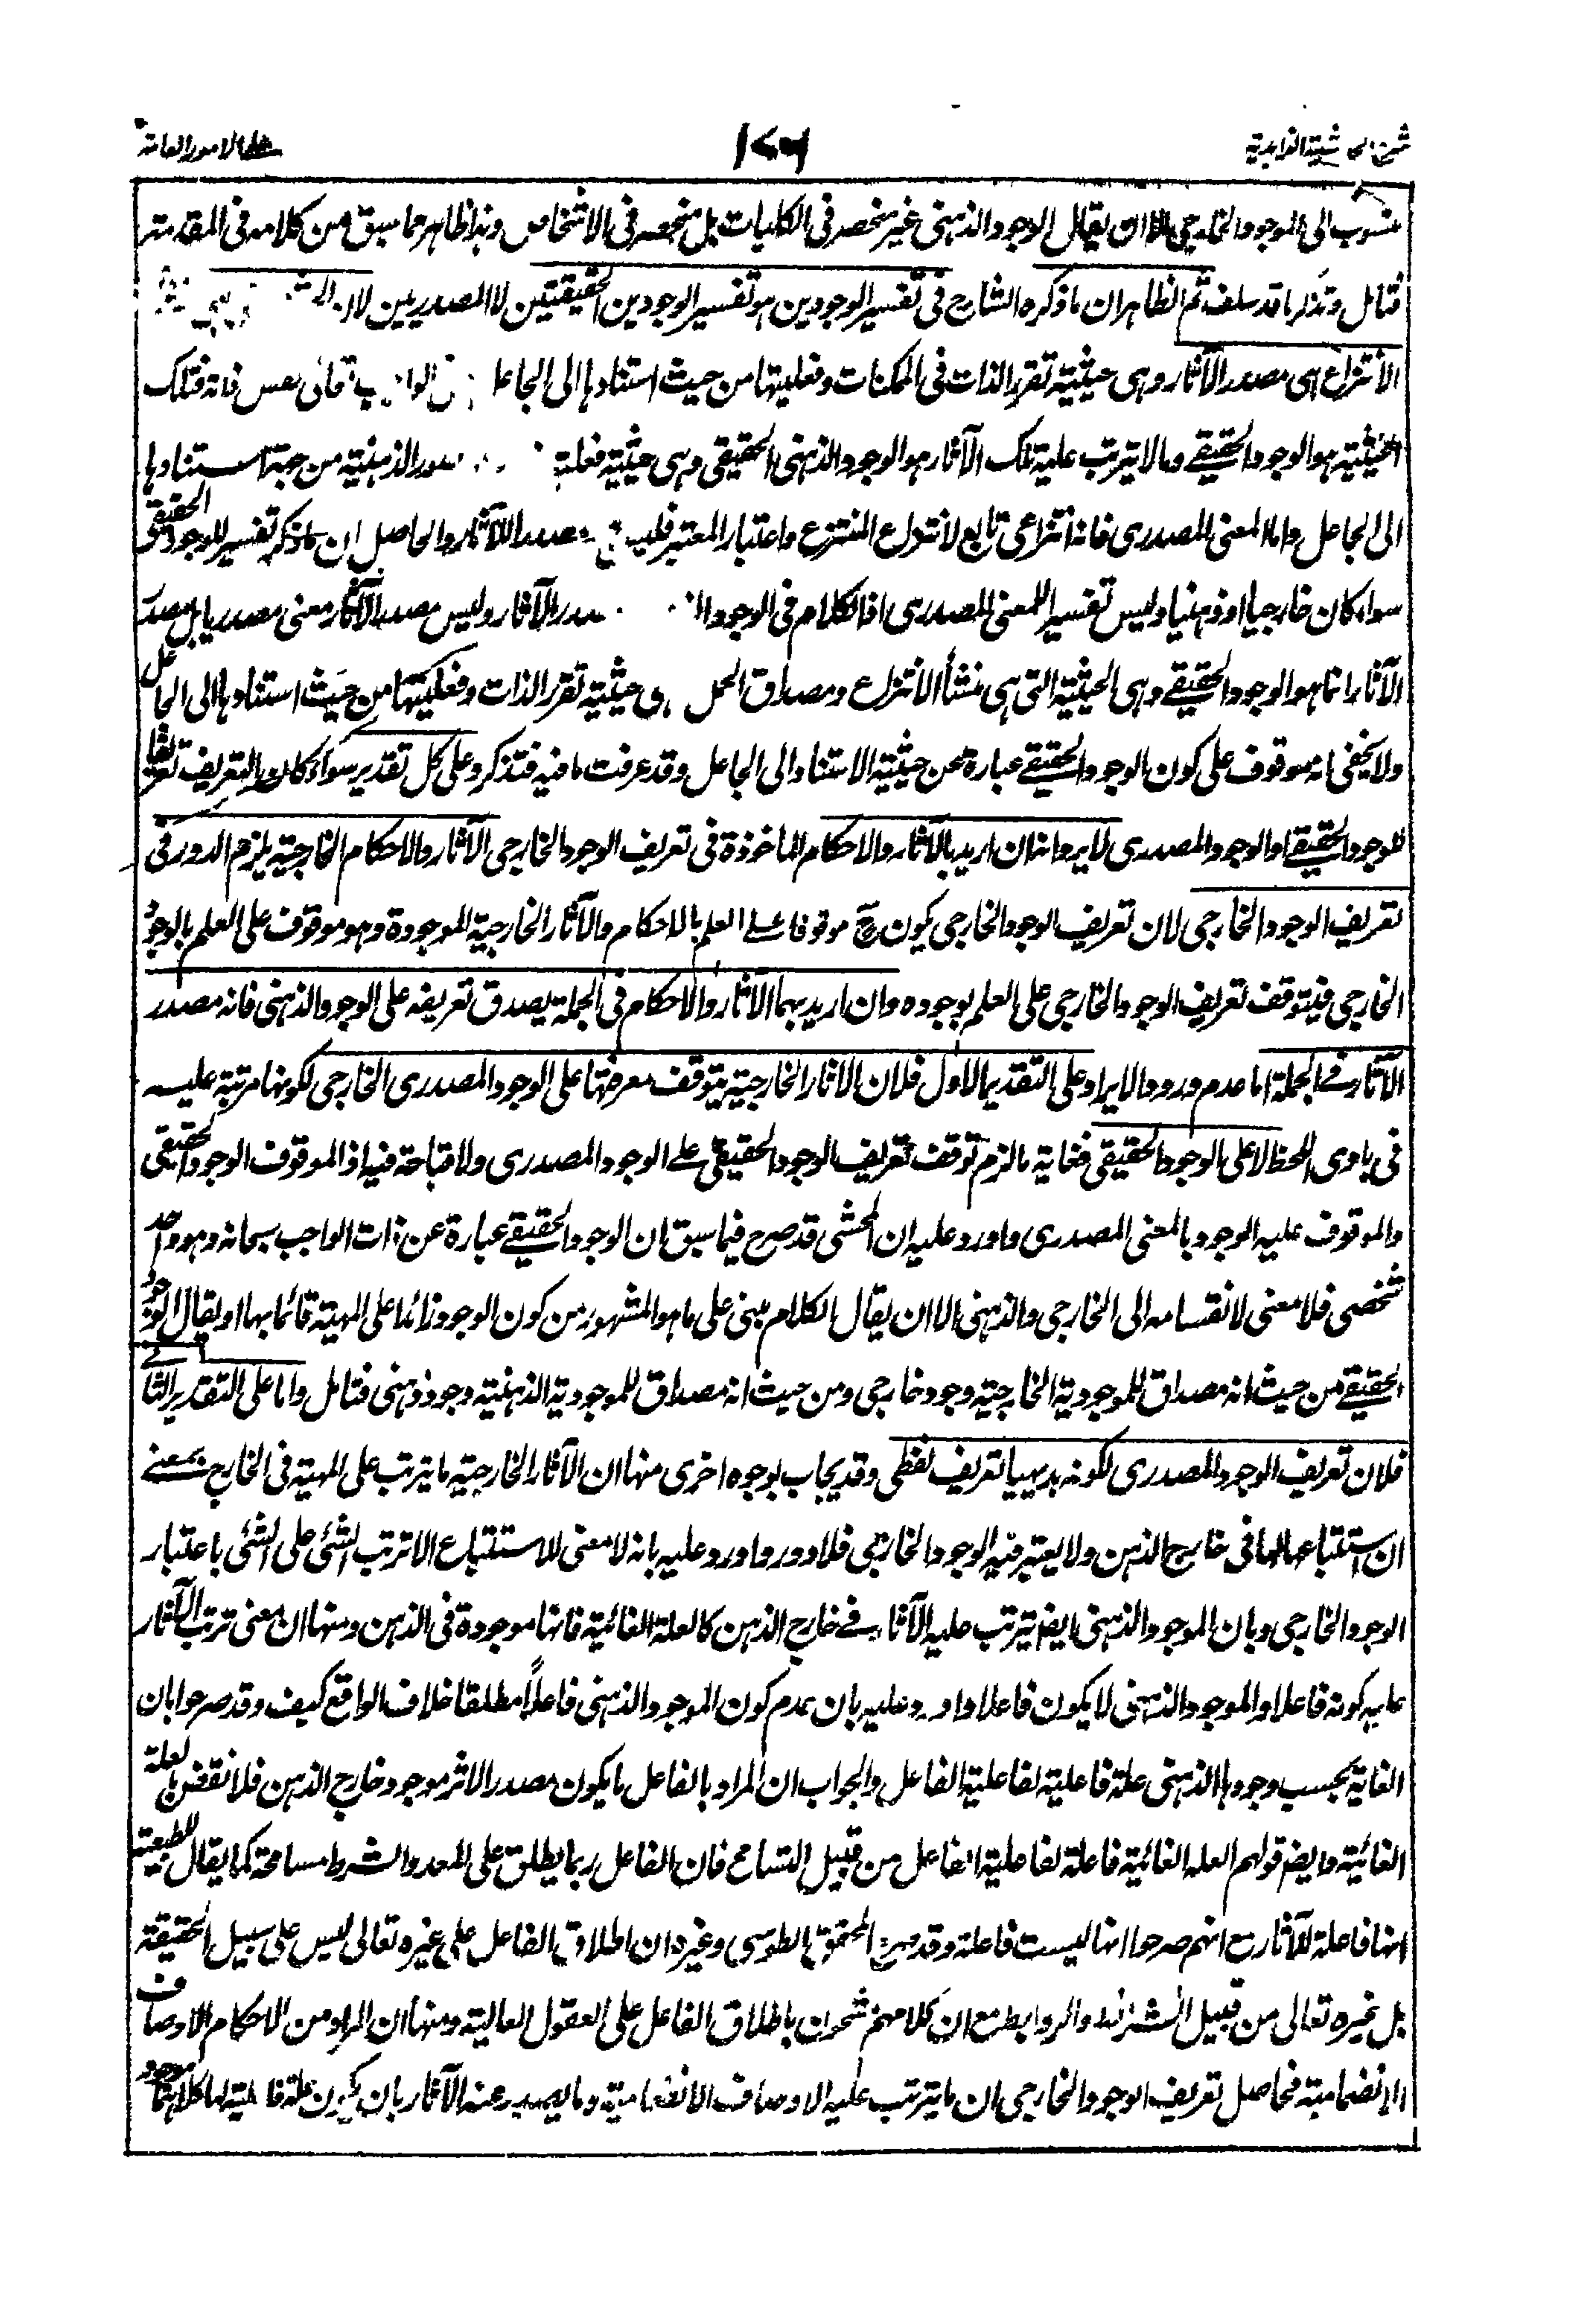 شرح حاشية الزاهدية
١٧٦
على الامور العامة
منسوب الى الوجود الخارجي الا ان يقال الوجود الذهنى غير منحصر فى الكليات بل منحصر فى الاشخاص وهذا ظاهر مما سبق من كلامه فى المقدمة
فتامل وتذكر ما قد سلف ثم الظاهر ان ما ذكره الشارح فى تفسير الوجودين هو تفسير الوجودين الحقيقيين لا المصدريين لان
الانتزاع هى مصدر الآثار وهى حيثية تقرر الذات فى الممكنات وفعليتها من حيث استنادها الى الجاعل وفى الواجب تعالى نفس ذاته فتلك
الحيثية هو الوجود الحقيقے وما لا يترتب عليه تلك الآثار هو الوجود الذهنى الحقيقى وهى حيثية فعلية الصور الذهنية من جهة استنادها
الى الجاعل واما المعنى المصدرى فانه انتزاعى تابع لانتزاع المنتزع واعتبار المعتبر فليس مصدر الآثار والحاصل ان ما ذكر تفسير للوجود الحقيقى
سواء كان خارجيا او ذهنيا وليس تفسيرا للمعنى المصدرى اذ الكلام فى الوجود مصدر الآثار وليس مصدر الآثار معنى مصدريا بل مصدر
الآثار انما هو الوجود الحقيقے وهى الحيثية التى هى منشأ الانتزاع ومصداق الحمل وهى حيثية تقرر الذات وفعليتها من حيث استنادها الى الجاعل
ولا يخفى انه موقوف على كون الوجود الحقيقے عبارة عن حيثية الاستناد الى الجاعل وقد عرفت ما فيه فتذكر وعلى كل تقدير سواء كان التعريف تعريفا
للوجود الحقيقے او الوجود المصدرى لا يرد انه ان اريد بالآثار والاحكام الماخوذة فى تعريف الوجود الخارجى الآثار والاحكام الخارجية يلزم الدور فى
تعريف الوجود الخارجى لان تعريف الوجود الخارجى يكون ح موقوفا علے العلم بالاحكام والآثار الخارجية الموجودة وهو موقوف على العلم بالوجود
الخارجى فيتوقف تعريف الوجود الخارجى على العلم بوجوده وان اريد بهما الآثار والاحكام فى الجملة يصدق تعريفه على الوجود الذهنى فانه مصدر
الآثار فے الجملة اما عدم ورود الايراد على التقدير الاول فلان الاثار الخارجية يتوقف معرفتها على الوجود المصدرى الخارجى لكونها مرتبة عليه
فى بادى اللحظ لا على الوجود الحقيقى فغاية ما لزم توقف تعريف الوجود الحقيقى علے الوجود المصدرى ولا قباحة فيه اذ الموقوف الوجود الحقيقى
والموقوف عليه الوجود بالمعنى المصدرى واورد عليه ان المحشى قد صرح فيما سبق ان الوجود الحقيقے عبارة عن ذات الواجب سبحانه وهو واحد
شخصى فلا معنى لانقسامه الى الخارجى والذهنى الا ان يقال الكلام مبنى على ما هو المشهور من كون الوجود زائدا على المهية قائما بها او يقال الوجود
الحقيقے من حيث انه مصداق للموجودية الخارجية وجود خارجى ومن حيث انه مصداق للموجودية الذهنية وجود ذهنى فتامل واما على التقدير الثانے
فلان تعريف الوجود المصدرى لكونه بديهيا تعريف لفظى وقد يجاب بوجوه اخرى منها ان الآثار الخارجية ما يترتب على المهية فى الخارج بمعنے
ان استتباعها لها فى خارج الذهن ولا يعتبر فيه الوجود الخارجى فلا دور واورد عليه بانه لا معنى للاستتباع الا ترتب الشئ على الشئ باعتبار
الوجود الخارجى وبان الموجود الذهنى ايضا يترتب عليه الآثار فے خارج الذهن كالعلة الغائية فانها موجودة فى الذهن ومنها ان معنى ترتب الآثار
عليه كونه فاعلا والموجود الذهنى لا يكون فاعلا واورد عليه بان عدم كون الموجود الذهنى فاعلاً مطلقا خلاف الواقع كيف وقد صرحوا بان
الغاية بحسب وجودها الذهنى علة فاعلية لفاعلية الفاعل والجواب ان المراد بالفاعل ما يكون مصدر الاثر موجود خارج الذهن فلا نقض بالعلة
الغائية وايضا قولهم العلة الغائية فاعلة لفاعلية الفاعل من قبيل التسامح فان الفاعل ربما يطلق على المعد والشرط مسامحة كما يقال للطبيعة
انها فاعلة للآثار مع انهم صرحوا انها ليست فاعلة وقد صرح المحقق الطوسى وغيره ان اطلاق الفاعل على غيره تعالى ليس على سبيل الحقيقة
بل غيره تعالى من قبيل الشرائط والروابط مع ان كلامهم مشحون باطلاق الفاعل على العقول العالية ومنها ان المراد من الاحكام الاوصاف
الانضمامية فحاصل تعريف الوجود الخارجى ان ما يترتب عليه الاوصاف الانضمامية وما يصدر عنه الآثار بان يكون علة فاعلية لها كلاهما موجود